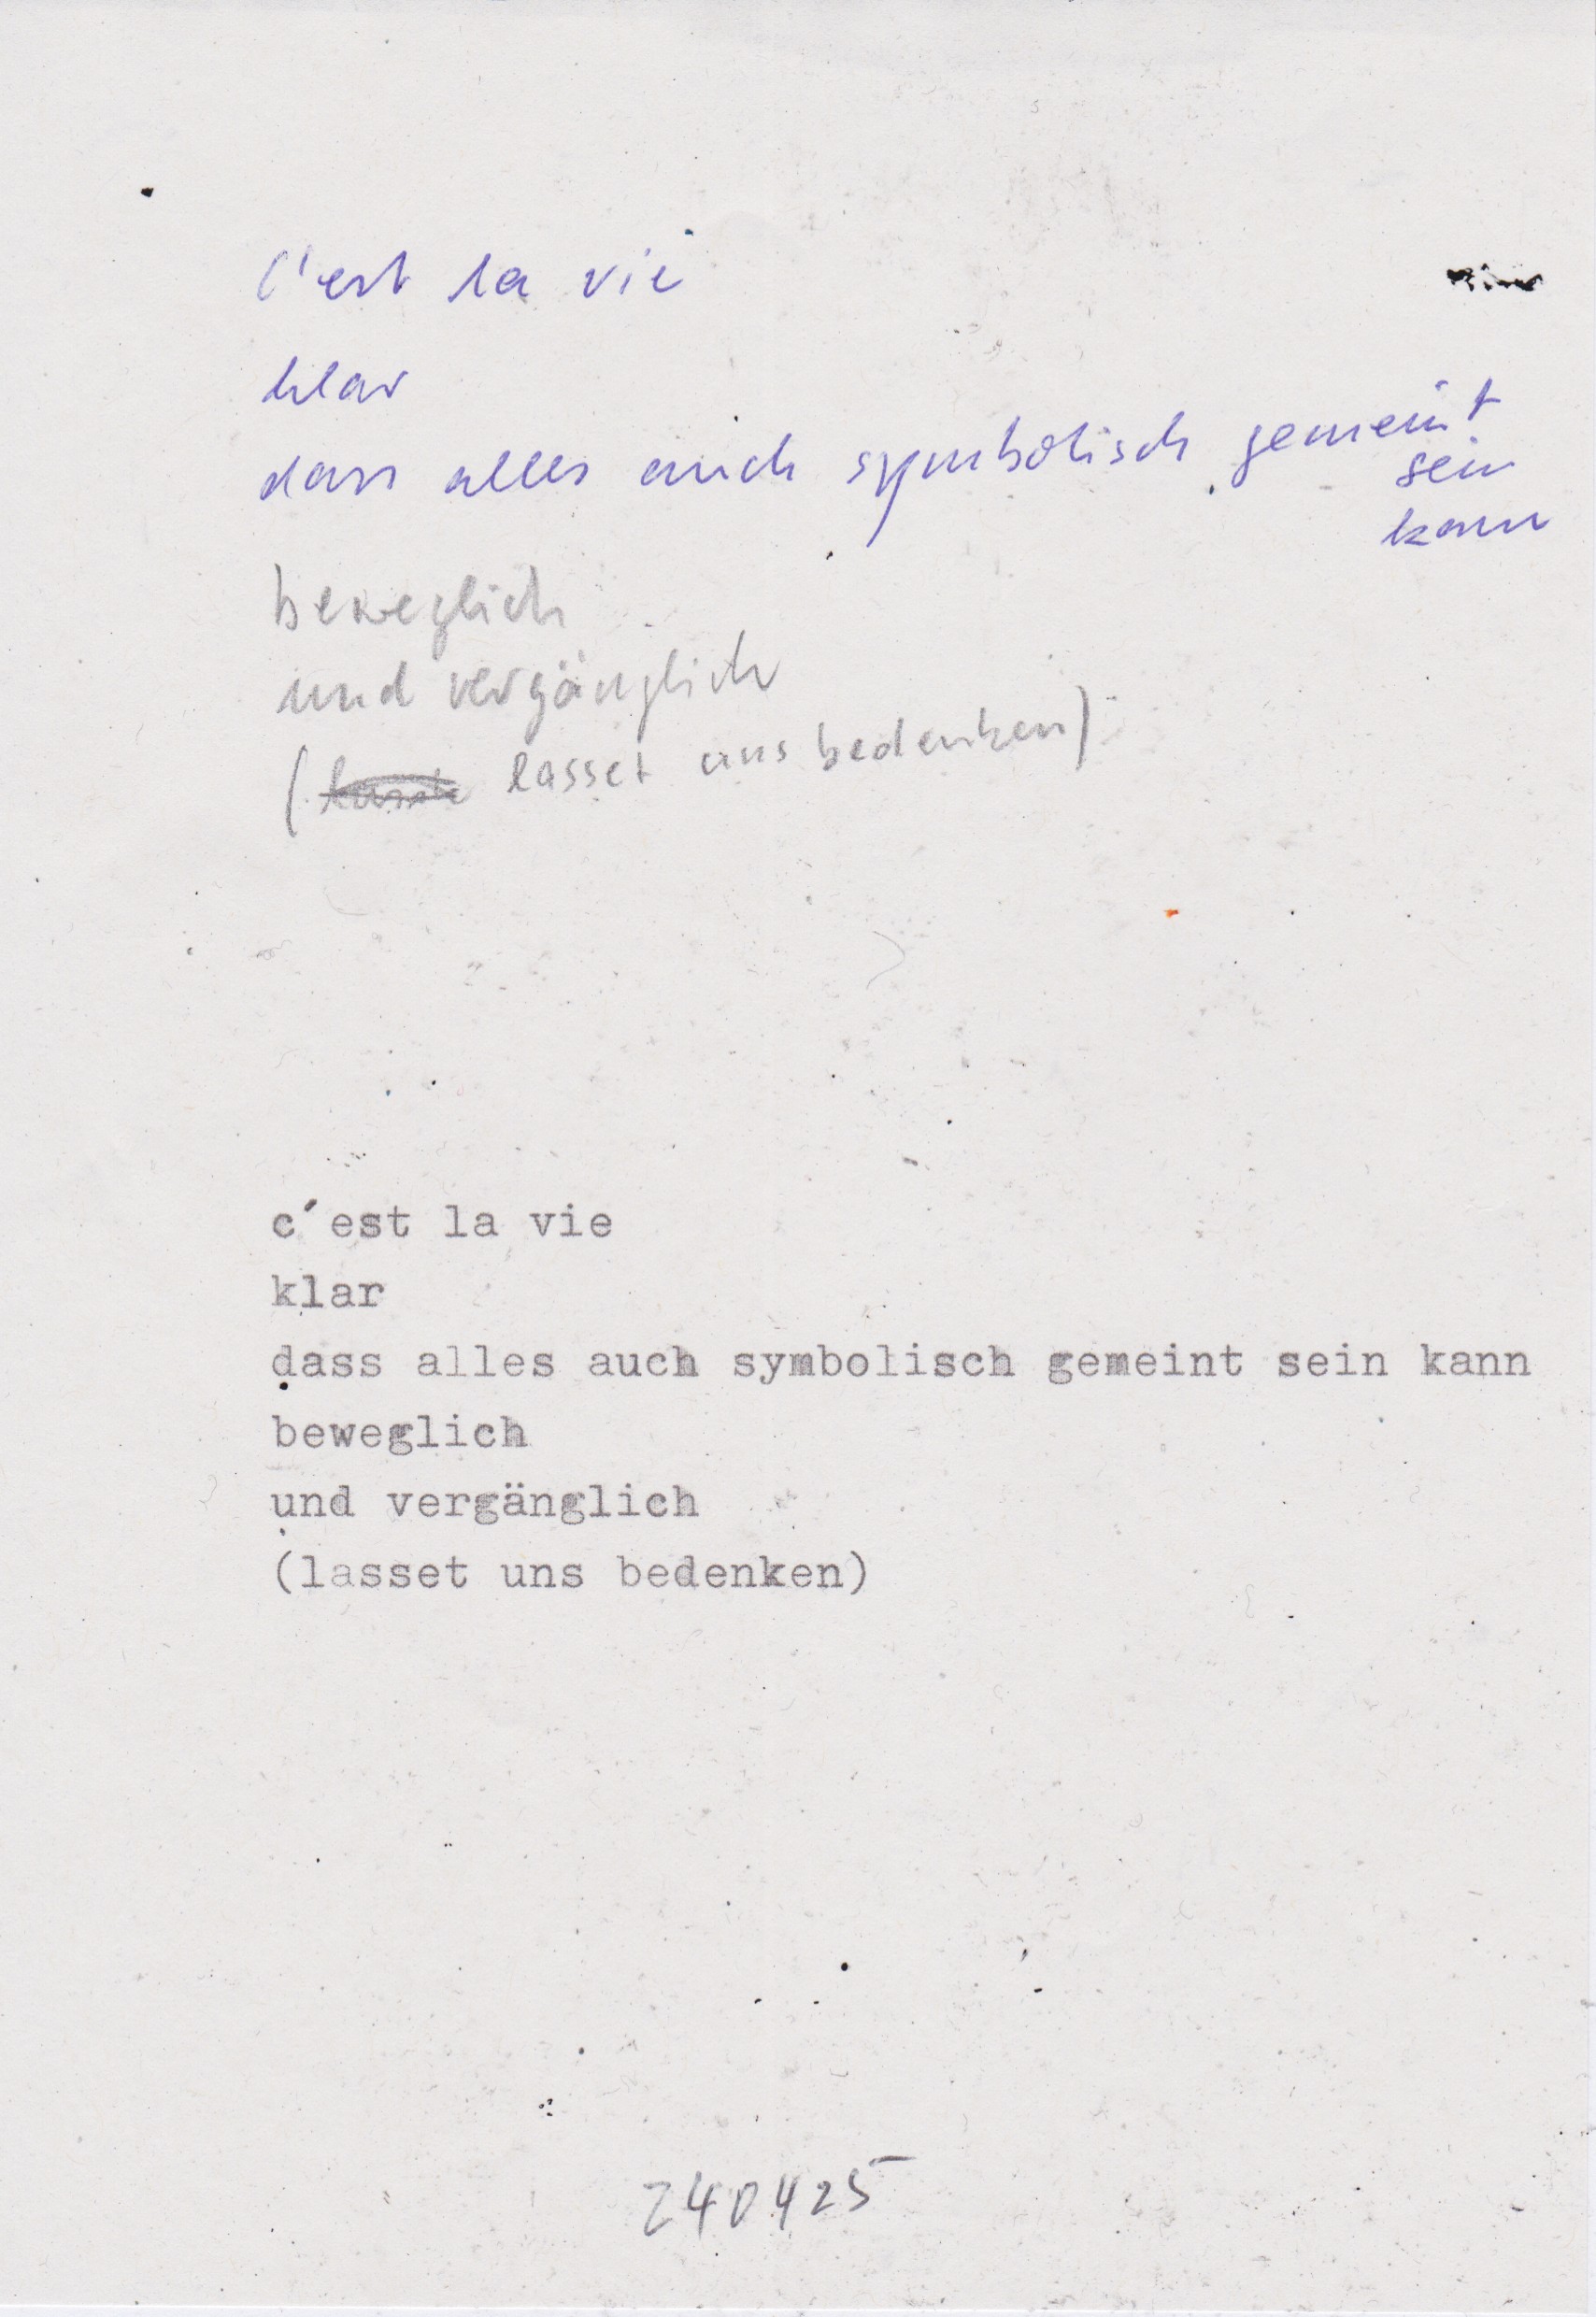 c'est la vie
klar
dass alles auch symbolisch gemeint
sein
kann
beweglich
und vergänglich
( lasset uns bedenken)
c´est la vie
klar
dass alles auch symbolisch gemeint sein kann
beweglich
und vergänglich
(lasset uns bedenken)
240425